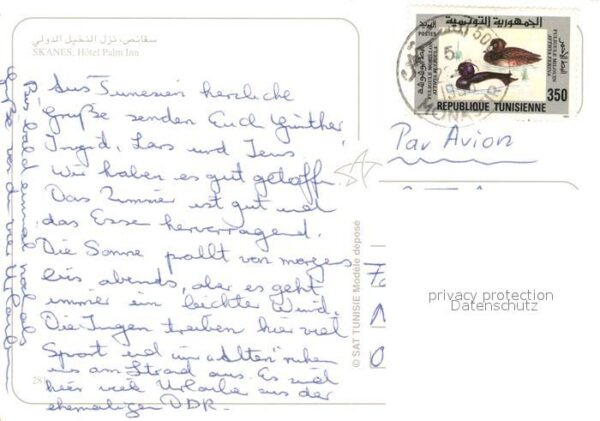 سقانص، نزل النخيل الدولي
SKANES, Hôtel Palm Inn
الجمهورية التونسية
POSTES
FULIGULE MORILLON
AYTHYA FULIGULA
FULIGULE MILOUIN
AYTHYA FERINA
350
REPUBLIQUE TUNISIENNE
MONASTIR
Par Avion
Aus Tunesien herzliche
Grüße senden Euch Günther
Ingrid, Lars und Jens!
Wir haben es gut getroffen.
Das Zimmer ist gut und
das Essen hervorragend.
Die Sonne prallt von morgens
bis abends, aber es geht
immer ein leichter Wind.
Die Jungen treiben hier viel
Sport und wir "Alten" ruhen
uns am Strand aus. Es sind
hier viele Urlauber aus der
ehemaligen DDR.
Bis bald einmal
Grüße
© SAT TUNISIE Modèle déposé
privacy protection
Datenschutz